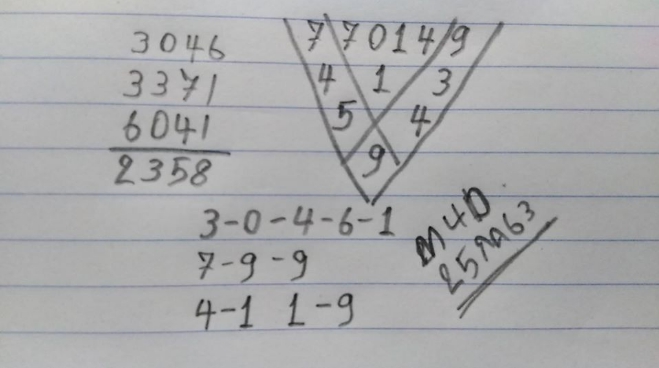 3046
3371
6041
2358
7 7 0 1 4 9
4 1 3
5 4
9
3-0-4-6-1
7-9-9
4-1 1-9
M4D